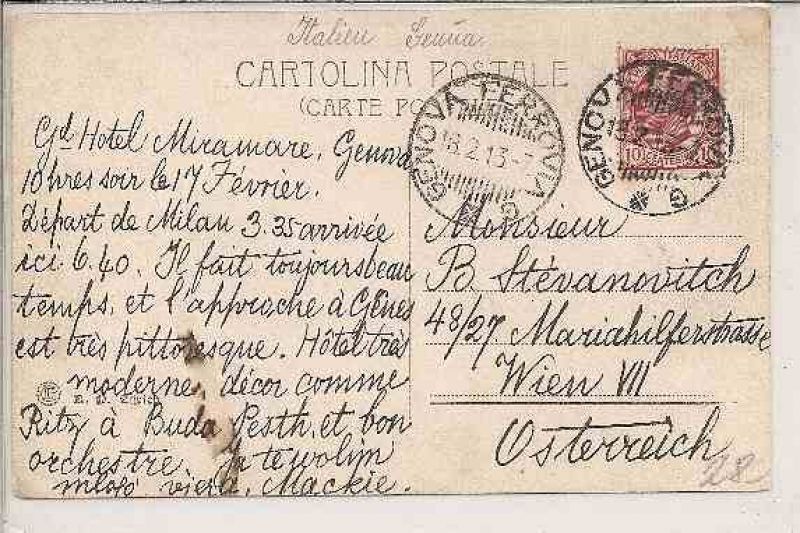 Italien Genua
CARTOLINA POSTALE
(CARTE PO
Gd Hotel Miramare, Genova
10 hres soir le 17 Février.
Départ de Milan 3.35 arrivée
ici 6.40. Il fait toujours beau
temps, et l'approche à Gênes
est très pittoresque. Hôtel très
moderne, décor comme
Ritz à Buda Pesth, et bon
orchestre. Ja te volim
mlogo Mackie.
GENOVA FERROVIA
18.2.13
GENOVA FERROVIA
10 10
Monsieur
B. Stévanovitch
48/27 Mariahilferstrasse
Wien VII
Osterreich
28